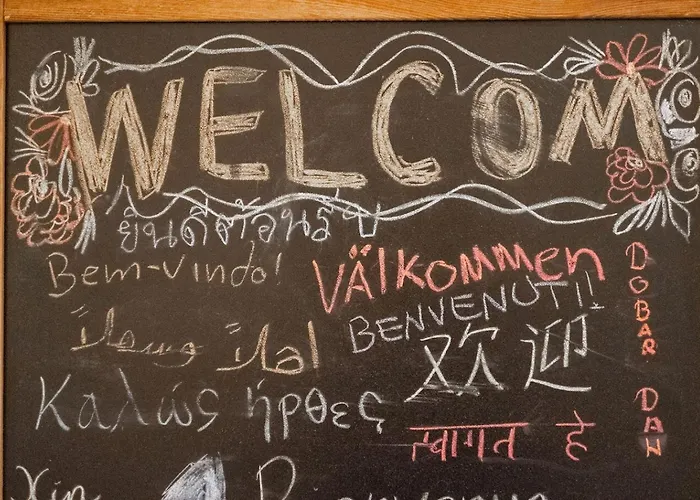 WELCOM
ยินดีต้อนรับ
Bem-vindo!
VÄLKOMMEN
BENVENUTI!
اهلاً وسهلاً
欢迎
Καλώς ήρθες
स्वागत है
DOBAR DAN
Xin